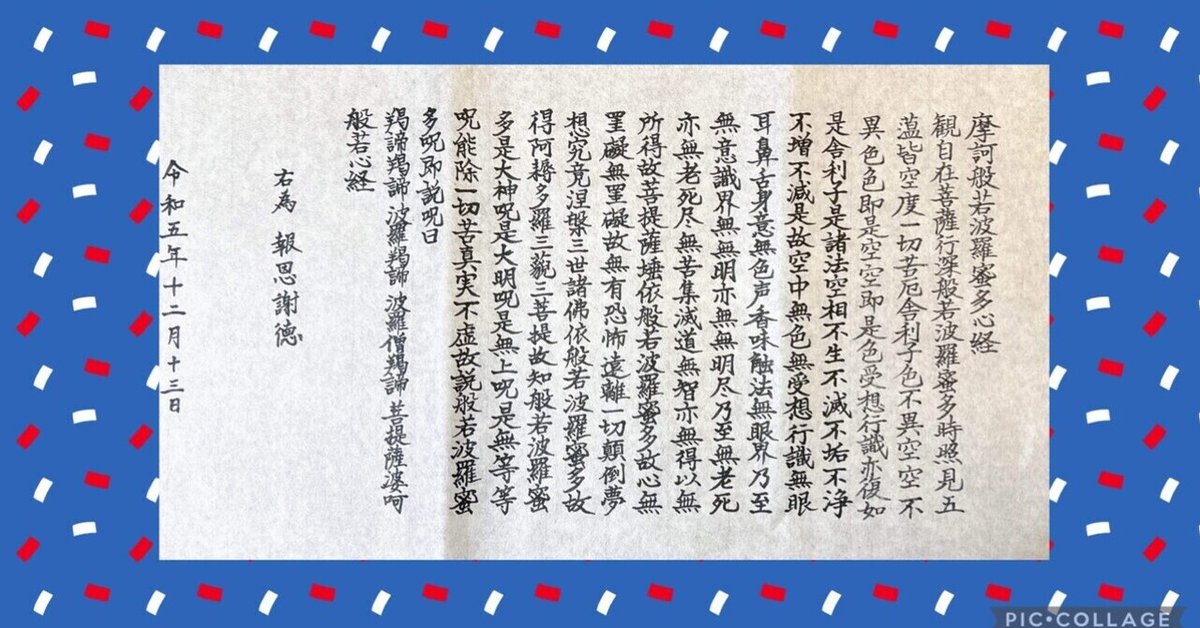 摩訶般若波羅蜜多心経
観自在菩薩行深般若波羅蜜多時照見五
蘊皆空度一切苦厄舎利子色不異空空不
異色色即是空空即是色受想行識亦復如
是舎利子是諸法空相不生不滅不垢不浄
不増不減是故空中無色無受想行識無眼
耳鼻舌身意無色声香味触法無眼界乃至
無意識界無無明亦無無明尽乃至無老死
亦無老死尽無苦集滅道無智亦無得以無
所得故菩提薩埵依般若波羅蜜多故心無
罣礙無罣礙故無有恐怖遠離一切顛倒夢
想究竟涅槃三世諸佛依般若波羅蜜多故
得阿耨多羅三藐三菩提故知般若波羅蜜
多是大神呪是大明呪是無上呪是無等等
呪能除一切苦真実不虚故説般若波羅蜜
多呪即説呪曰
羯諦羯諦 波羅羯諦 波羅僧羯諦 菩提薩婆呵
般若心経
右為 報恩謝徳
令和五年十二月十三日
PIC•COLLAGE